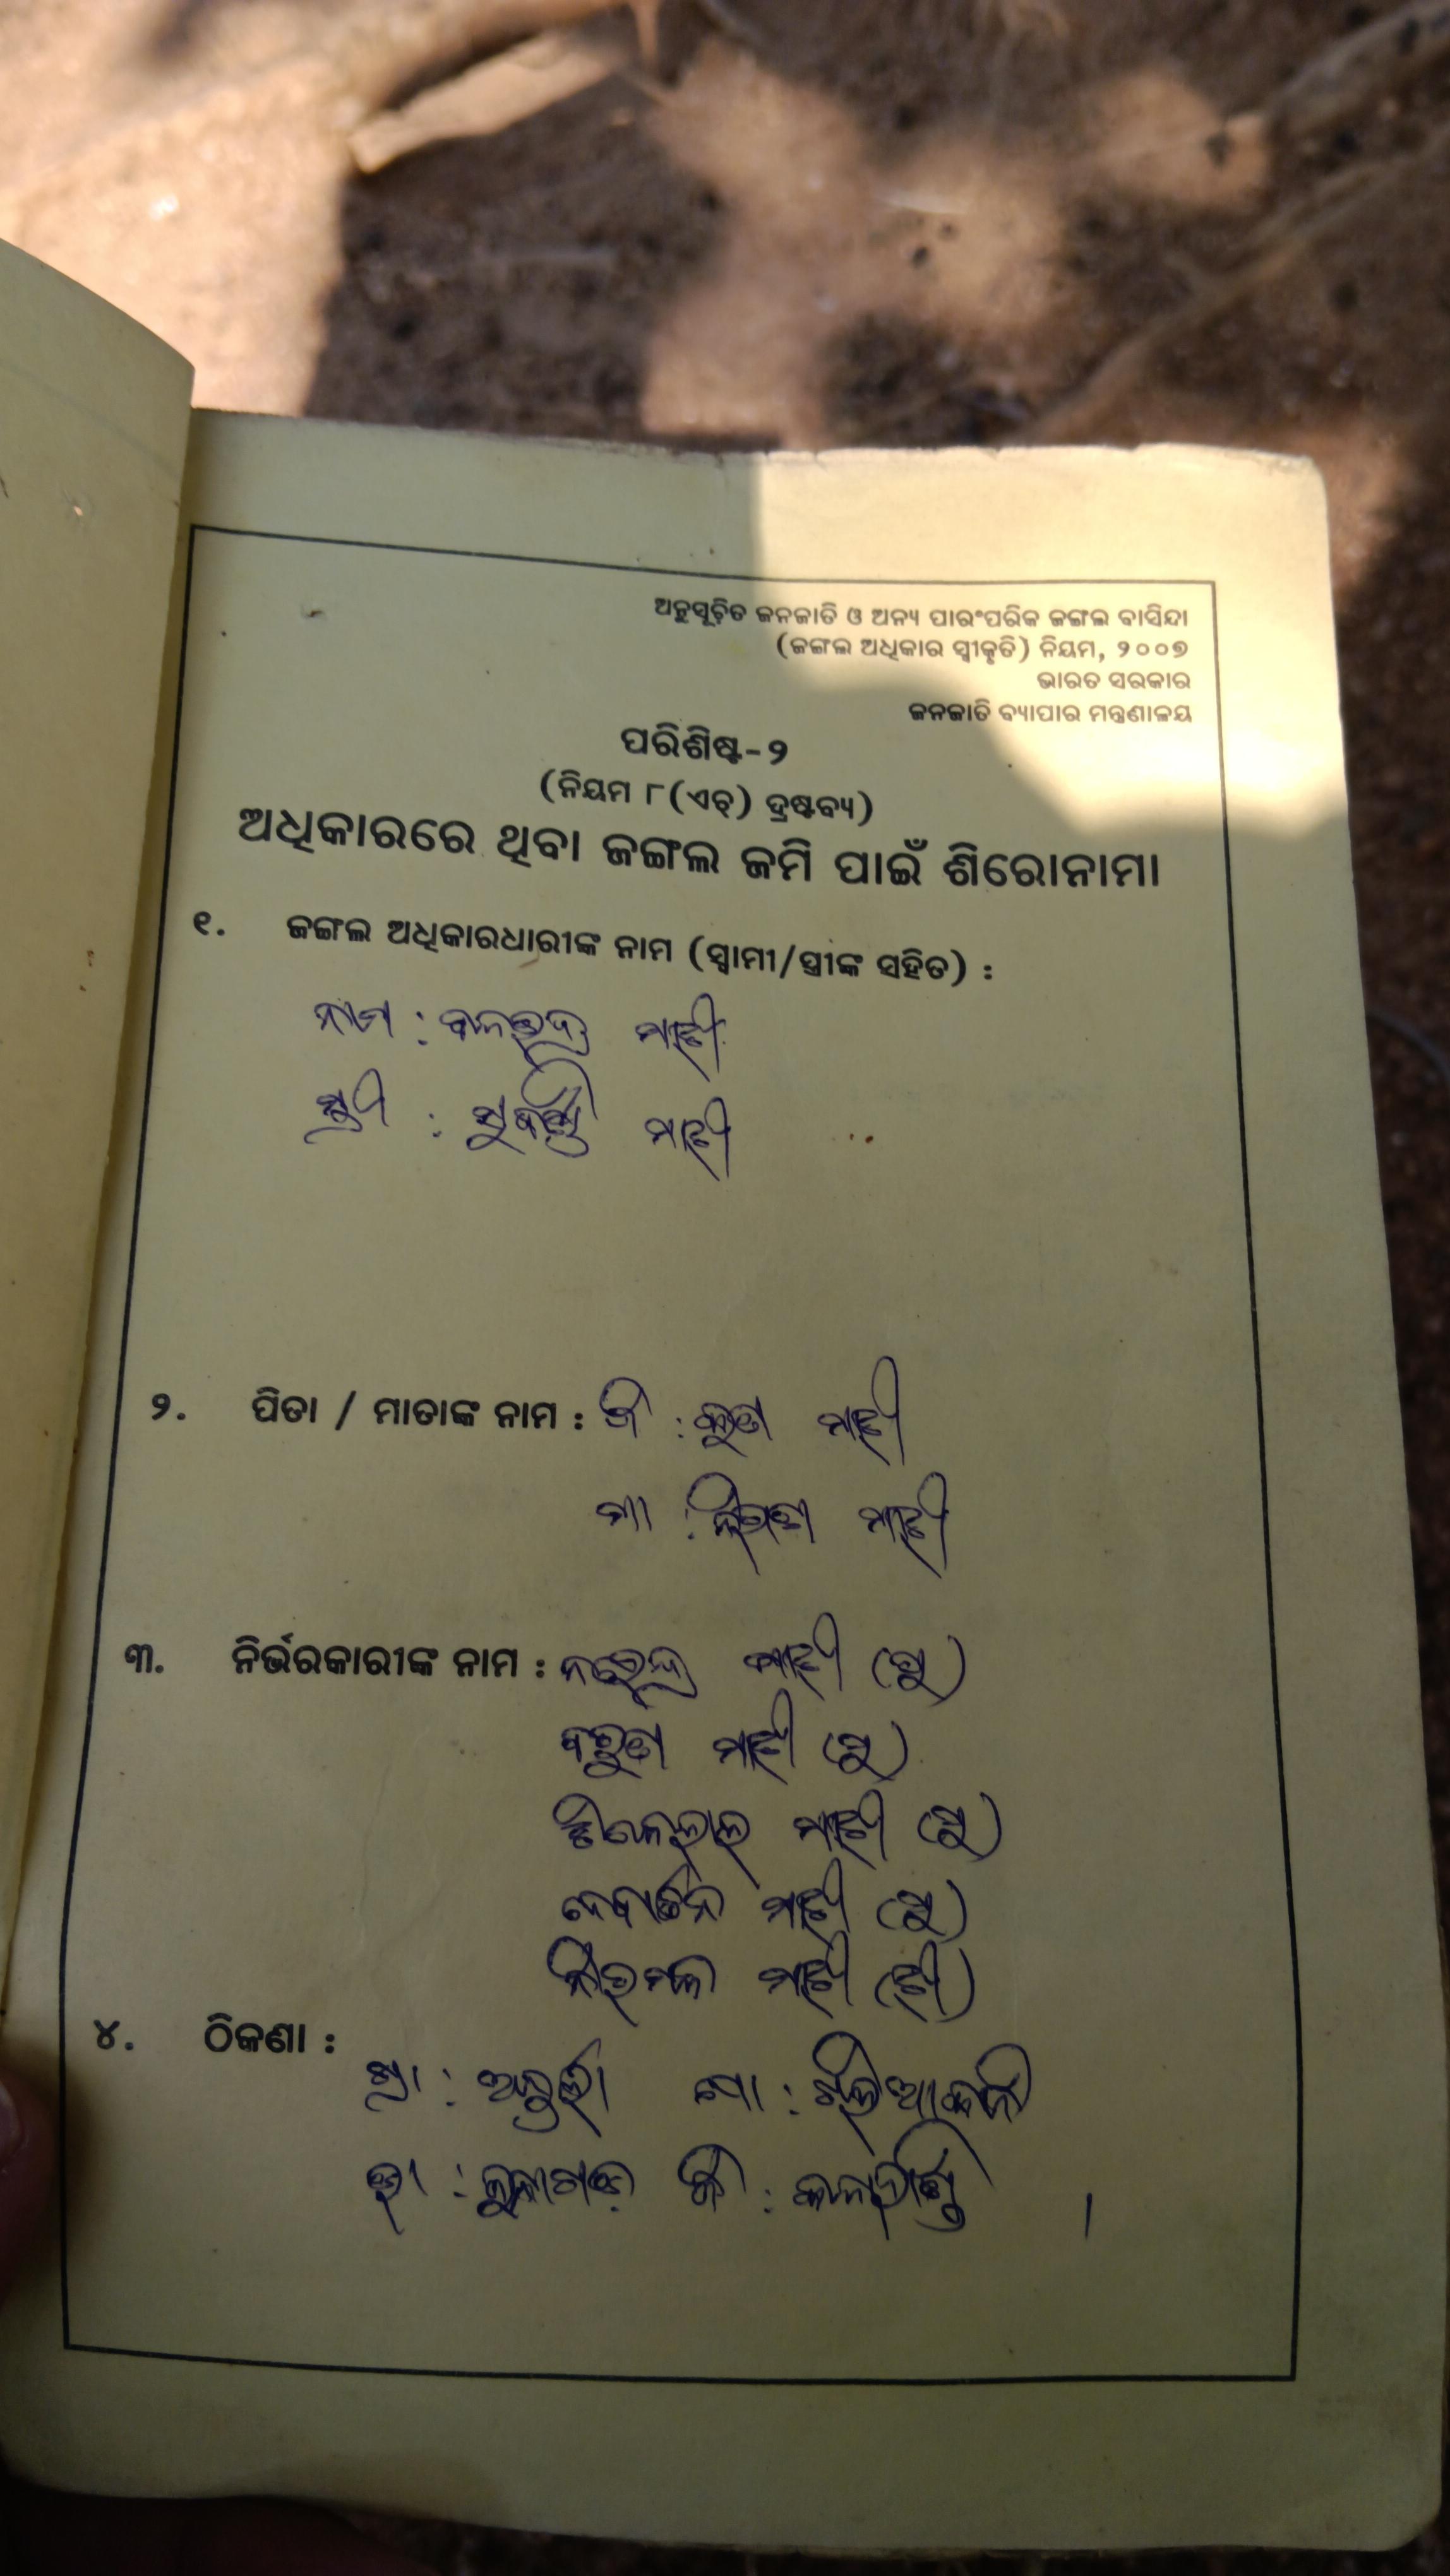 ଅନୁସୂଚିତ ଜନଜାତି ଓ ଅନ୍ୟ ପାରଂପରିକ ଜଙ୍ଗଲ ବାସିନ୍ଦା
(ଜଙ୍ଗଲ ଅଧିକାର ସ୍ୱୀକୃତି) ନିୟମ, ୨୦୦୭
ଭାରତ ସରକାର
ଜନଜାତି ବ୍ୟାପାର ମନ୍ତ୍ରଣାଳୟ
ପରିଶିଷ୍ଟ-୨
(ନିୟମ ୮(ଏଚ୍) ଦ୍ରଷ୍ଟବ୍ୟ)
ଅଧିକାରରେ ଥିବା ଜଙ୍ଗଲ ଜମି ପାଇଁ ଶିରୋନାମା
୧. ଜଙ୍ଗଲ ଅଧିକାରଧାରୀଙ୍କ ନାମ (ସ୍ୱାମୀ/ସ୍ତ୍ରୀଙ୍କ ସହିତ) :
ନାମ : ବଳଭଦ୍ର ମାଝୀ
ସ୍ତ୍ରୀ : ମାଝୀ
୨. ପିତା / ମାତାଙ୍କ ନାମ : ପି : ମାଝୀ
ମା : ମାଝୀ
୩. ନିର୍ଭରକାରୀଙ୍କ ନାମ : ନରେନ୍ଦ୍ର ମାଝୀ (ପୁ)
ବରୁଣ ମାଝୀ (ପୁ)
ମାଝୀ (ପୁ)
ମାଝୀ (ପୁ)
ମାଝୀ (ଝୀ)
୪. ଠିକଣା :
ଗ୍ରା : ପୋ :
ଜି : କଳାହାଣ୍ଡି ।